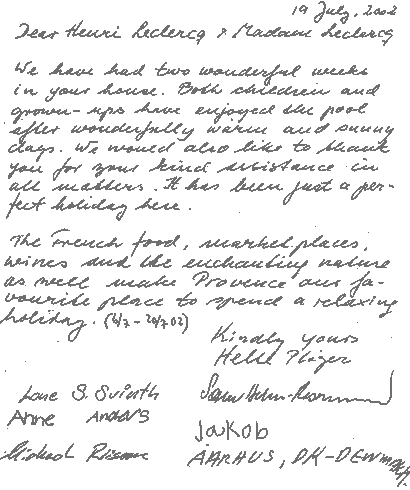 19 July, 2002
Dear Henri Leclercq & Madame Leclercq
We have had two wonderful weeks
in your house. Both children and
grown-ups have enjoyed the pool
after wonderfully warm and sunny
days. We would also like to thank
you for your kind assistance in
all matters. It has been just a per-
fect holiday here.
The French food, marketplaces,
wines and the enchanting nature
as well make Provence our fa-
vourite place to spend a relaxing
holiday. (6/7 - 20/7 02)
Kindly yours
Helle
Lone S. Svinth
Anne Anders
Jakob
AARHUS, DK-DENMARK